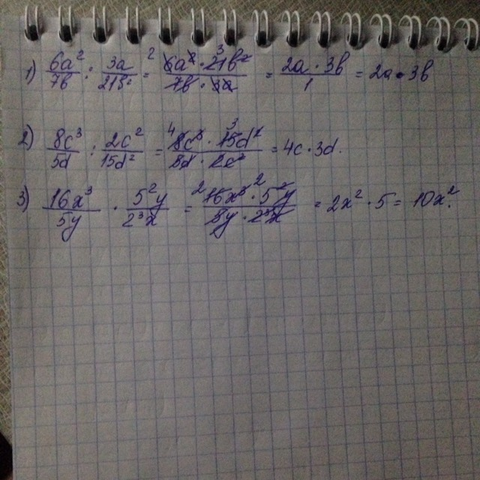 1) 6a²/7b : 3a/21b² = 6a²·21b²/7b·3a = 2a·3b/1 = 2a·3b
2) 8c³/5d : 2c²/15d² = 8c³·15d²/5d·2c² = 4c·3d.
3) 16x³/5y · 5²y/2³x = 16x³·5²y/5y·2³x = 2x²·5 = 10x².